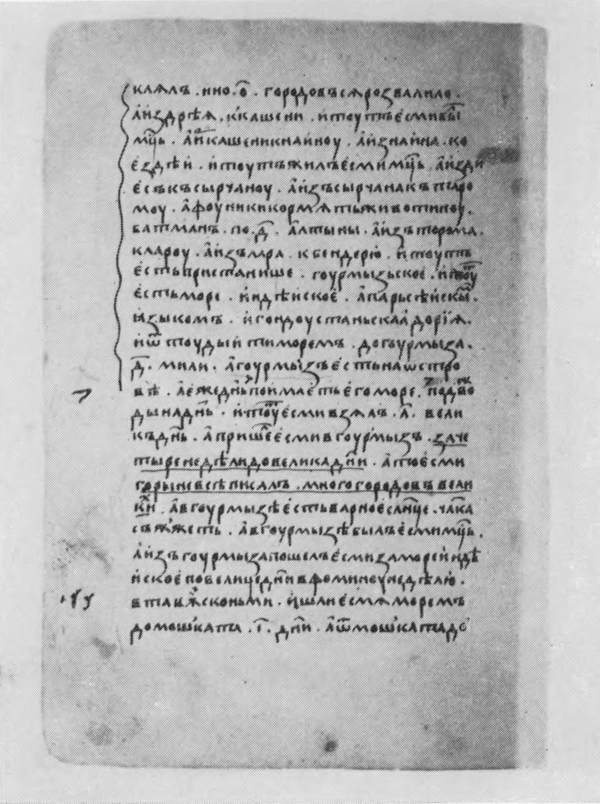 клялъ . ино . о҃ . городовъ ся розвалило .
а из дрѣя . к кашени . и тоутъ есми был
мц҃ь . а ис кашени к наиноу . а из наина . ко
ездѣи . и тоутъ жилъ есми мц҃ь . а из ди
есъ къ сырчаноу . а изъ сырчана къ таро
моу . а фоуники кормятъ животиноу .
батманъ . по . д҃ . алтыны . а изъ торома .
к лароу . а изъ лара . к бендерю . и тоутъ
есть пристанище . гоурмызьское . и тоут
есть море . индѣиское . а парьсѣискым .
языкомъ . и гондоустаньскаа дорія .
и ѿтоуды ити моремъ . до гоурмыза .
д҃ . мили . а гоурмызъ есть на ѡстро
вѣ . а ежеднь поимаеть его море . по двож
ды на днь . и тоут есми взялъ . а҃ . вели
къ днь . а пришел есми в гоурмызъ . за че
тыре недѣли до велика дни . а то есми
городы не всѣ писалъ . много городовъ вели
ких . а в гоурмызѣ есть варное слнце . чл҃ка
съжжеть . а в гоурмызѣ былъ есми мц҃ь .
а изъ гоурмыза пошелъ есми за море индѣ
иское по велице дни в фоминоу недѣлю .
в тавж с коньми . и шли есмя моремъ
до мошката . і҃ . дни . а ѿ мошката до